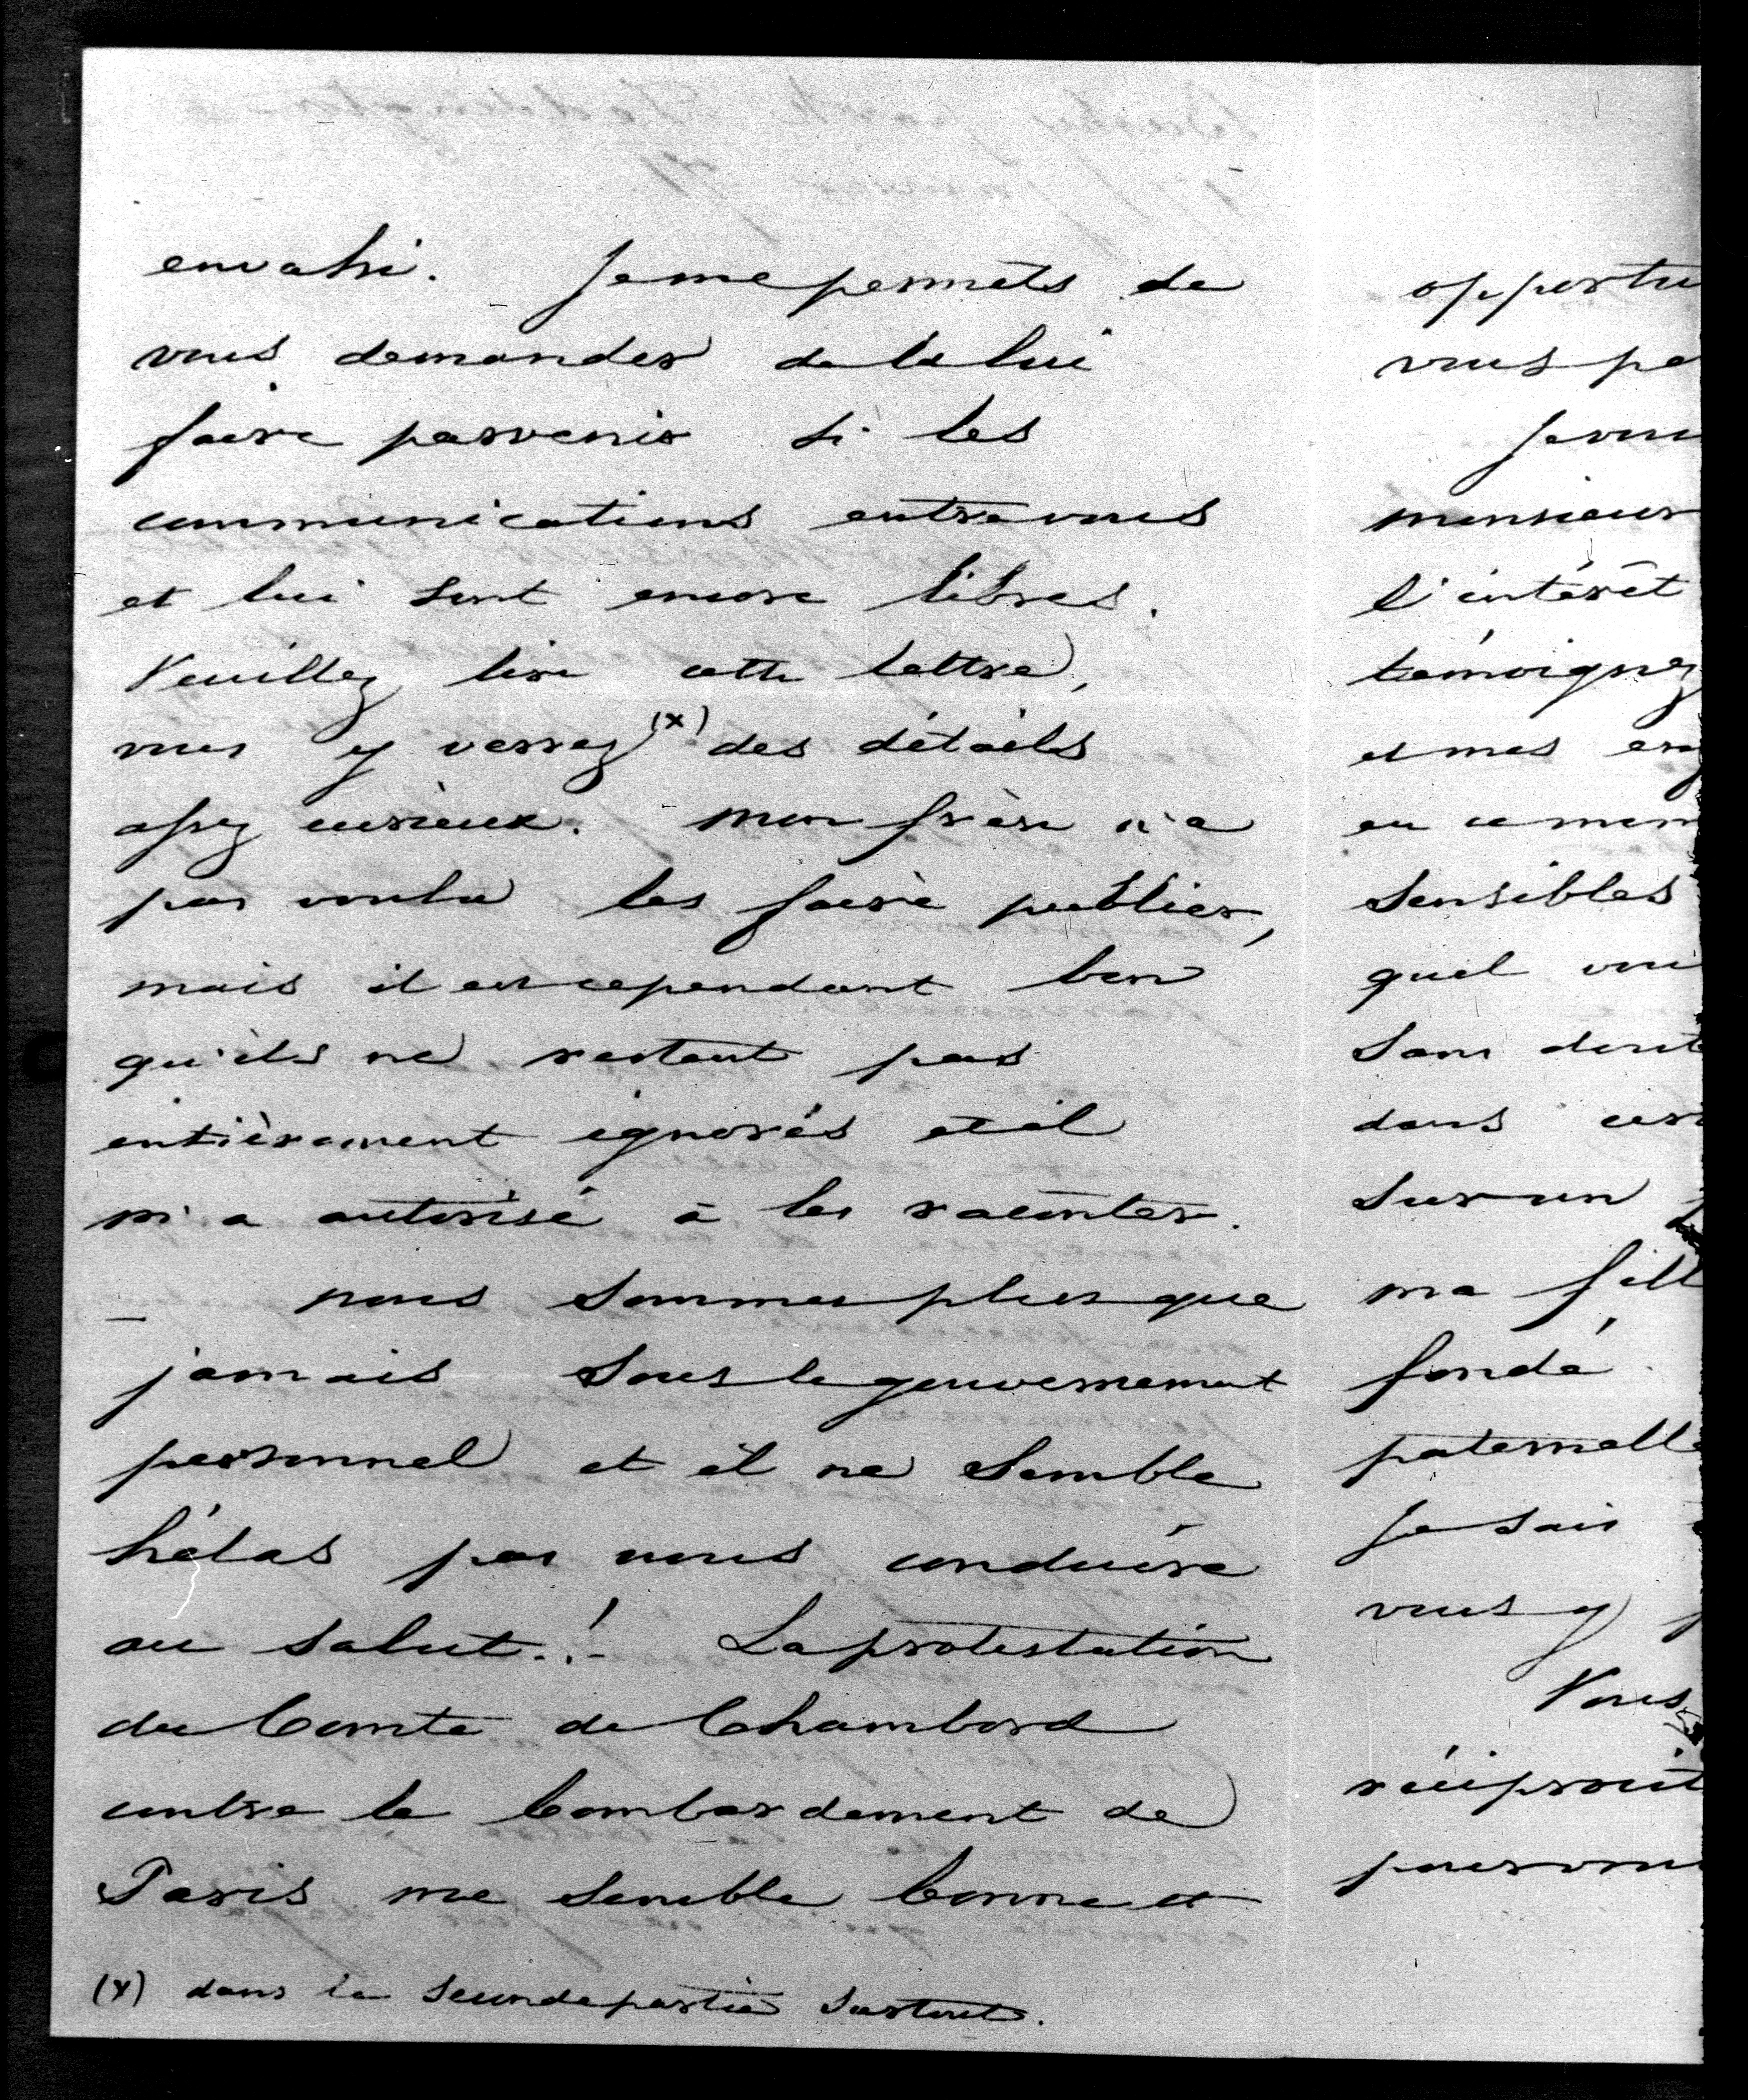 envahi. Je me permets de
vous demander de la lui
faire parvenir si les
communications entre vous
et lui sont encore libres.
Veuillez lire cette lettre,
vous y verrez (x) des détails
assez curieux. mon frère n'a
pas voulu les faire publier,
mais il est cependant bon
qu'ils ne restent pas
entièrement ignorés et il
m'a autorisé à les raconter.
_ nous sommes plus que
jamais sous le gouvernement
personnel et il ne semble
hélas pas nous conduire
au salut..!- La protestation
du Comte de Chambord
contre le bombardement de
Paris me semble bonne et
(x) dans la seconde partie surtout.
opportu
vous pe
Je vou
monsieur
l'intérêt
témoignez
et mes
en ce mom
sensibles
quel vou
sans dout
dans
sur un
ma fill
fondé
paternelle
Je sais
vous y
Vous
réciprocit
pour vou